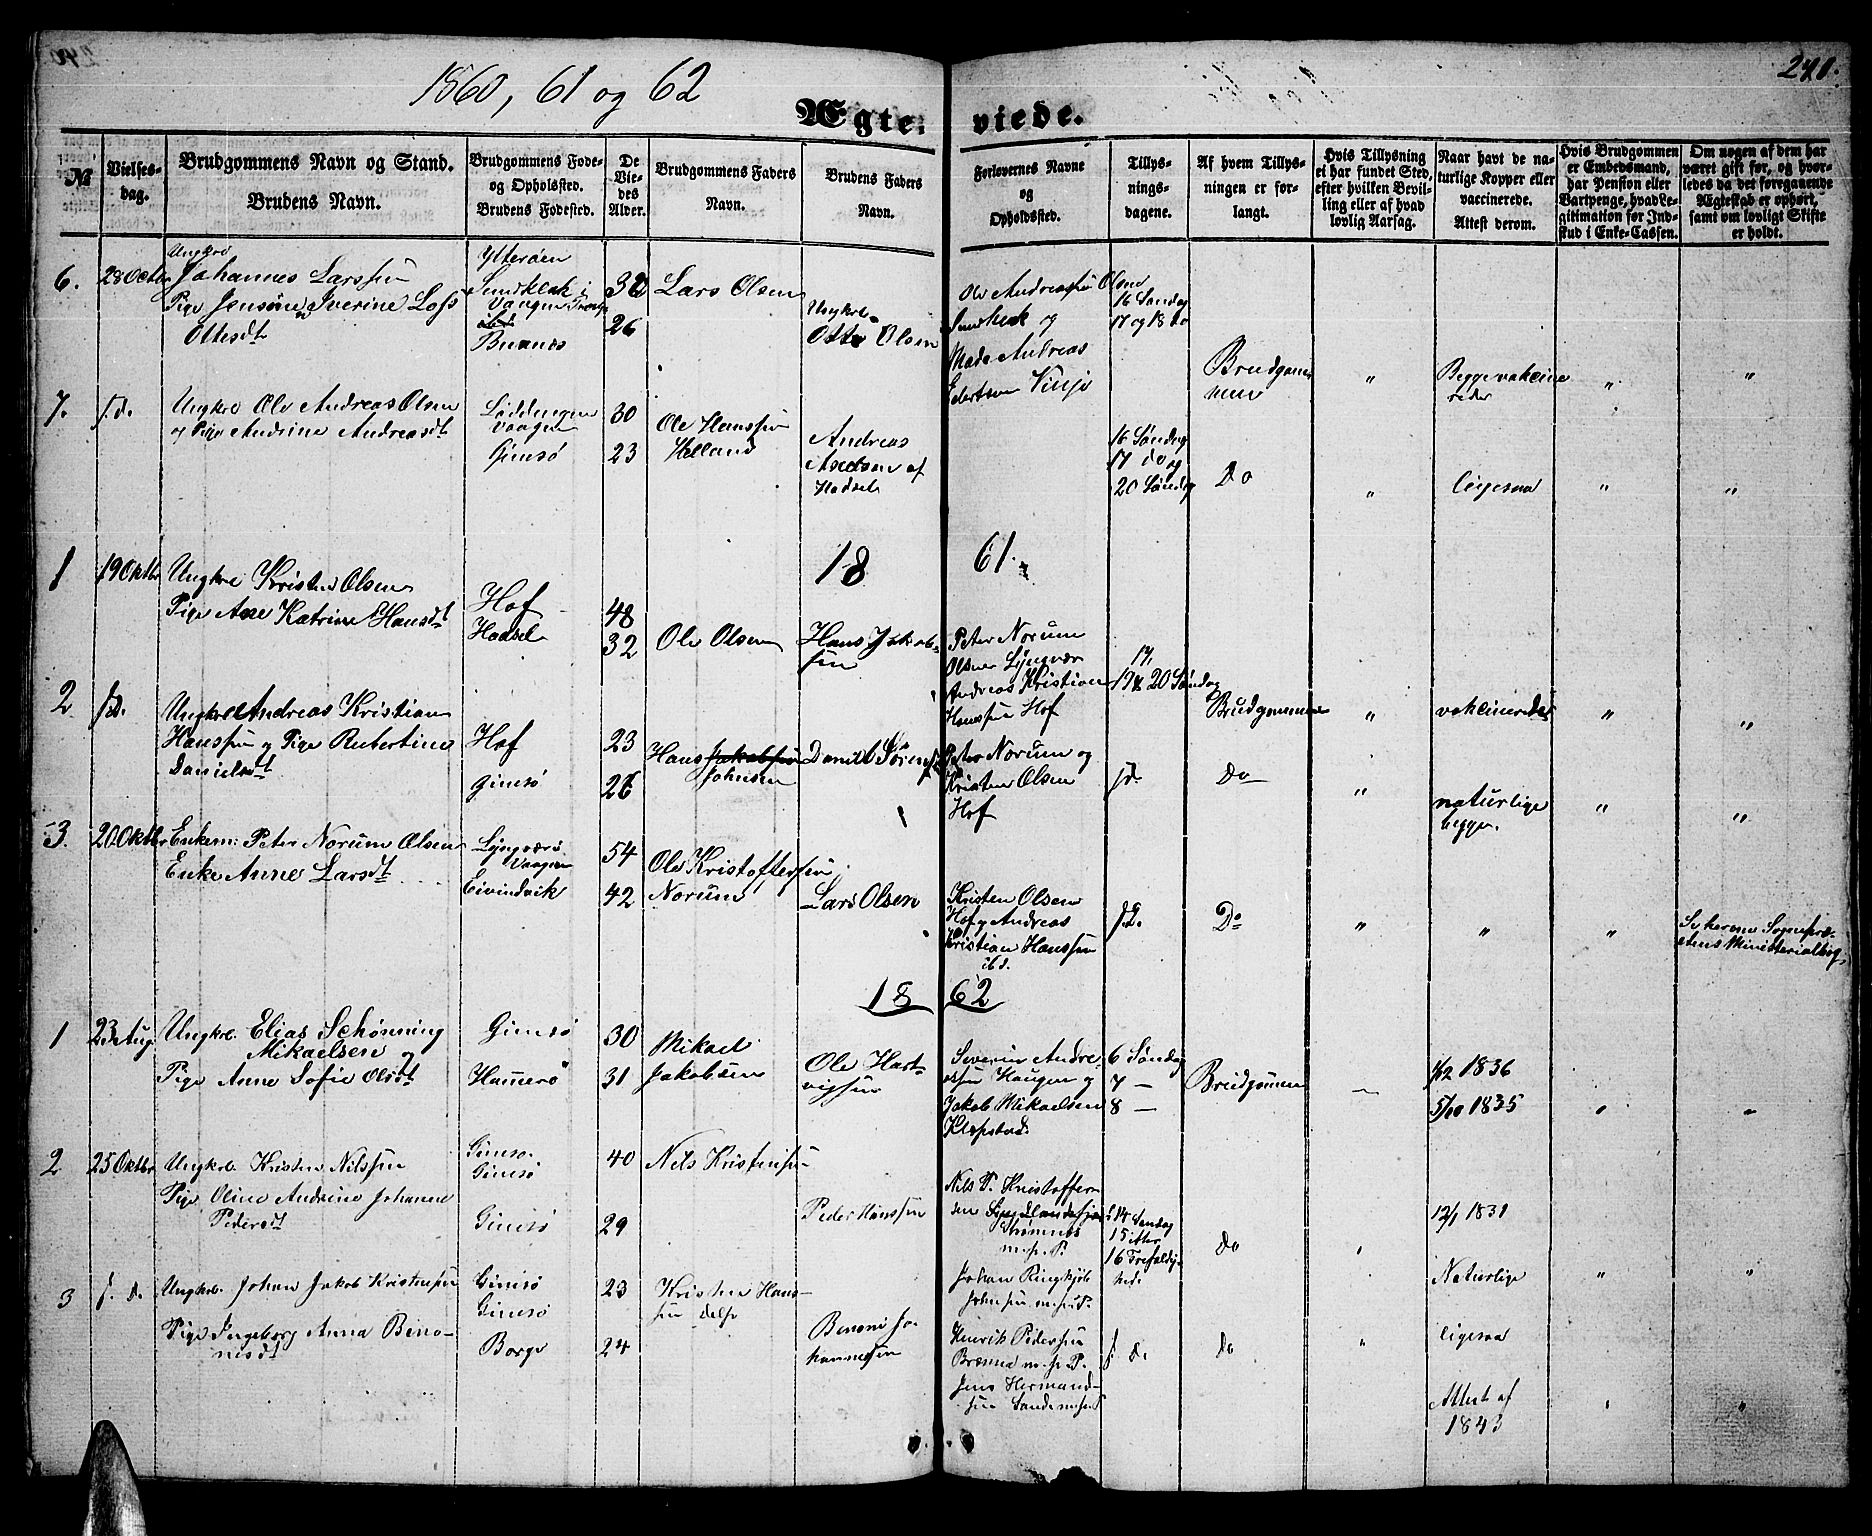 1860, 61 og 62
241.
Ægte=
viede.
№
Vielses-
dag.
Brudgommens Navn og Stand.
Brudens Navn.
Brudgommens Føde-
og Opholdssted.
Brudens Fødested.
De
Vie-
des
Alder.
Brudgommens Faders
Navn.
Brudens Faders
Navn.
Forlovernes Navne
og
Opholdssted.
Tillys-
nings-
dagene.
Af hvem Tillys-
ningen er for-
langt.
Hvis Tillysning
ei har fundet Sted,
efter hvilken Bevil-
ling eller af hvad
lovlig Aarsag.
Naar havt de na-
turlige Kopper eller
vaccinerede.
Attest derom.
Hvis Brudgommen
er Embedsmand,
har Pension eller
Vartpenge, hvad Le-
gitimation for Ind-
skud i Enke-Cassen.
Om nogen af dem har
været gift før, og hvor-
ledes da det foregaaende
Ægteskab er ophørt,
samt om lovligt Skifte
er holdt.
6.
28 Octbr
Ungkrl
Johannes Larssen
Pige Jensine Iverine
Ottesdt
Ytterøen
Buxnæs
32
26
Lars Olsen
Ungkrl.
Otte Olsen
Ole Andreassen Olsen
og
Mads Andreas
16 Søndag
17 og 18 do
Brudgom
men
"
Begge vakcine
reder
"
"
7.
s.d.
Ungkrl Ole Andreas Olsen
og Pige Andrine Andreasdt
Løddingen
Vaagen
Gimsø
30
23
Ole Hanssen
Helland
Andreas
af
Hadsel
16 Søndag
17 do og
20 Søndag
Do
"
ligesaa
"
"
1861.
1
19 Oktbr
Ungkrl Kristen Olsen
Pige Ane Katrine Hansdt
Hof
Hadsel
48
32
Ole Olsen
Hans Jakob-
sen
Peter Norum
Olsen Lyngvær
Andreas Kristian
Hanssen Hof
17,
19 & 20 Søndag
Brudgommen
"
vakcinerede
"
"
2
s.d.
Ungkrl Andreas Kristian
Hanssen og Pige Rubertine
Danielsdt
Hof
Gimsø
23
26
Hans Jakobsen
Johnsen
Daniel Sørens
Peter Norum og
Kristen Olsen
Hof
s.d.
Do
"
naturlige
begge.
"
"
3.
20 Oktbr
Enkem: Peter Norum Olsen
Enke Anne Larsdt
Lyngvær
Vaagen
Eivindvik
54
42
Ole Kristoffersen
Norum
Lars Olsen
Kristen Olsen
Hof og Andreas
Kristian Hanssen
ibd.
s.d.
Do
"
"
"
Se herom Sognepræ-
stens Ministerialbog
1862
1
23 Aug
Ungkrl. Elias Schønning
Mikaelsen og
Pige Anne Sofie Olsdt
Gimsø
Hamerø
30
31
Mikael
Jakobsen
Ole Hart-
vigsen
Severin Andre
assen Haugen og
Jakob Mikaelsen
Klepstad.
6 Søndag
7 —
8 —
Brudgommen
—
1/12 1836
5/10 1835
"
"
2
25 Oktbr
Ungkrl. Kristen Nilssen
Pige Oline Andrine Johanne
Pedersdt
Gimsø
Gimsø
Gimsø
40
29
Nils Kristensen
Peder Hanssen
Nils P. Kristoffer
sen
Strømnes
m.s.P.
Johan Ringkjøb
Johnsen m.s.P.
14 Søndag
15 efter
16 Trefoldig-
hed.
Do
"
12/1 1831
Naturlige
"
"
3
s. d.
Ungkrl. Johan Jakob Kristensen
Pige Ingeborg Anna Beno-
nisdt
Gimsø
Gimsø
Borge
23
24
Kristen Hans-
sen
Benoni Jo-
hannessen
Henrik Pederssen
Brenna m.s.P.
Jens Hermand-
sen Sande m.s.P
s. d.
do
"
ligesaa
Attest af
1843
"
"